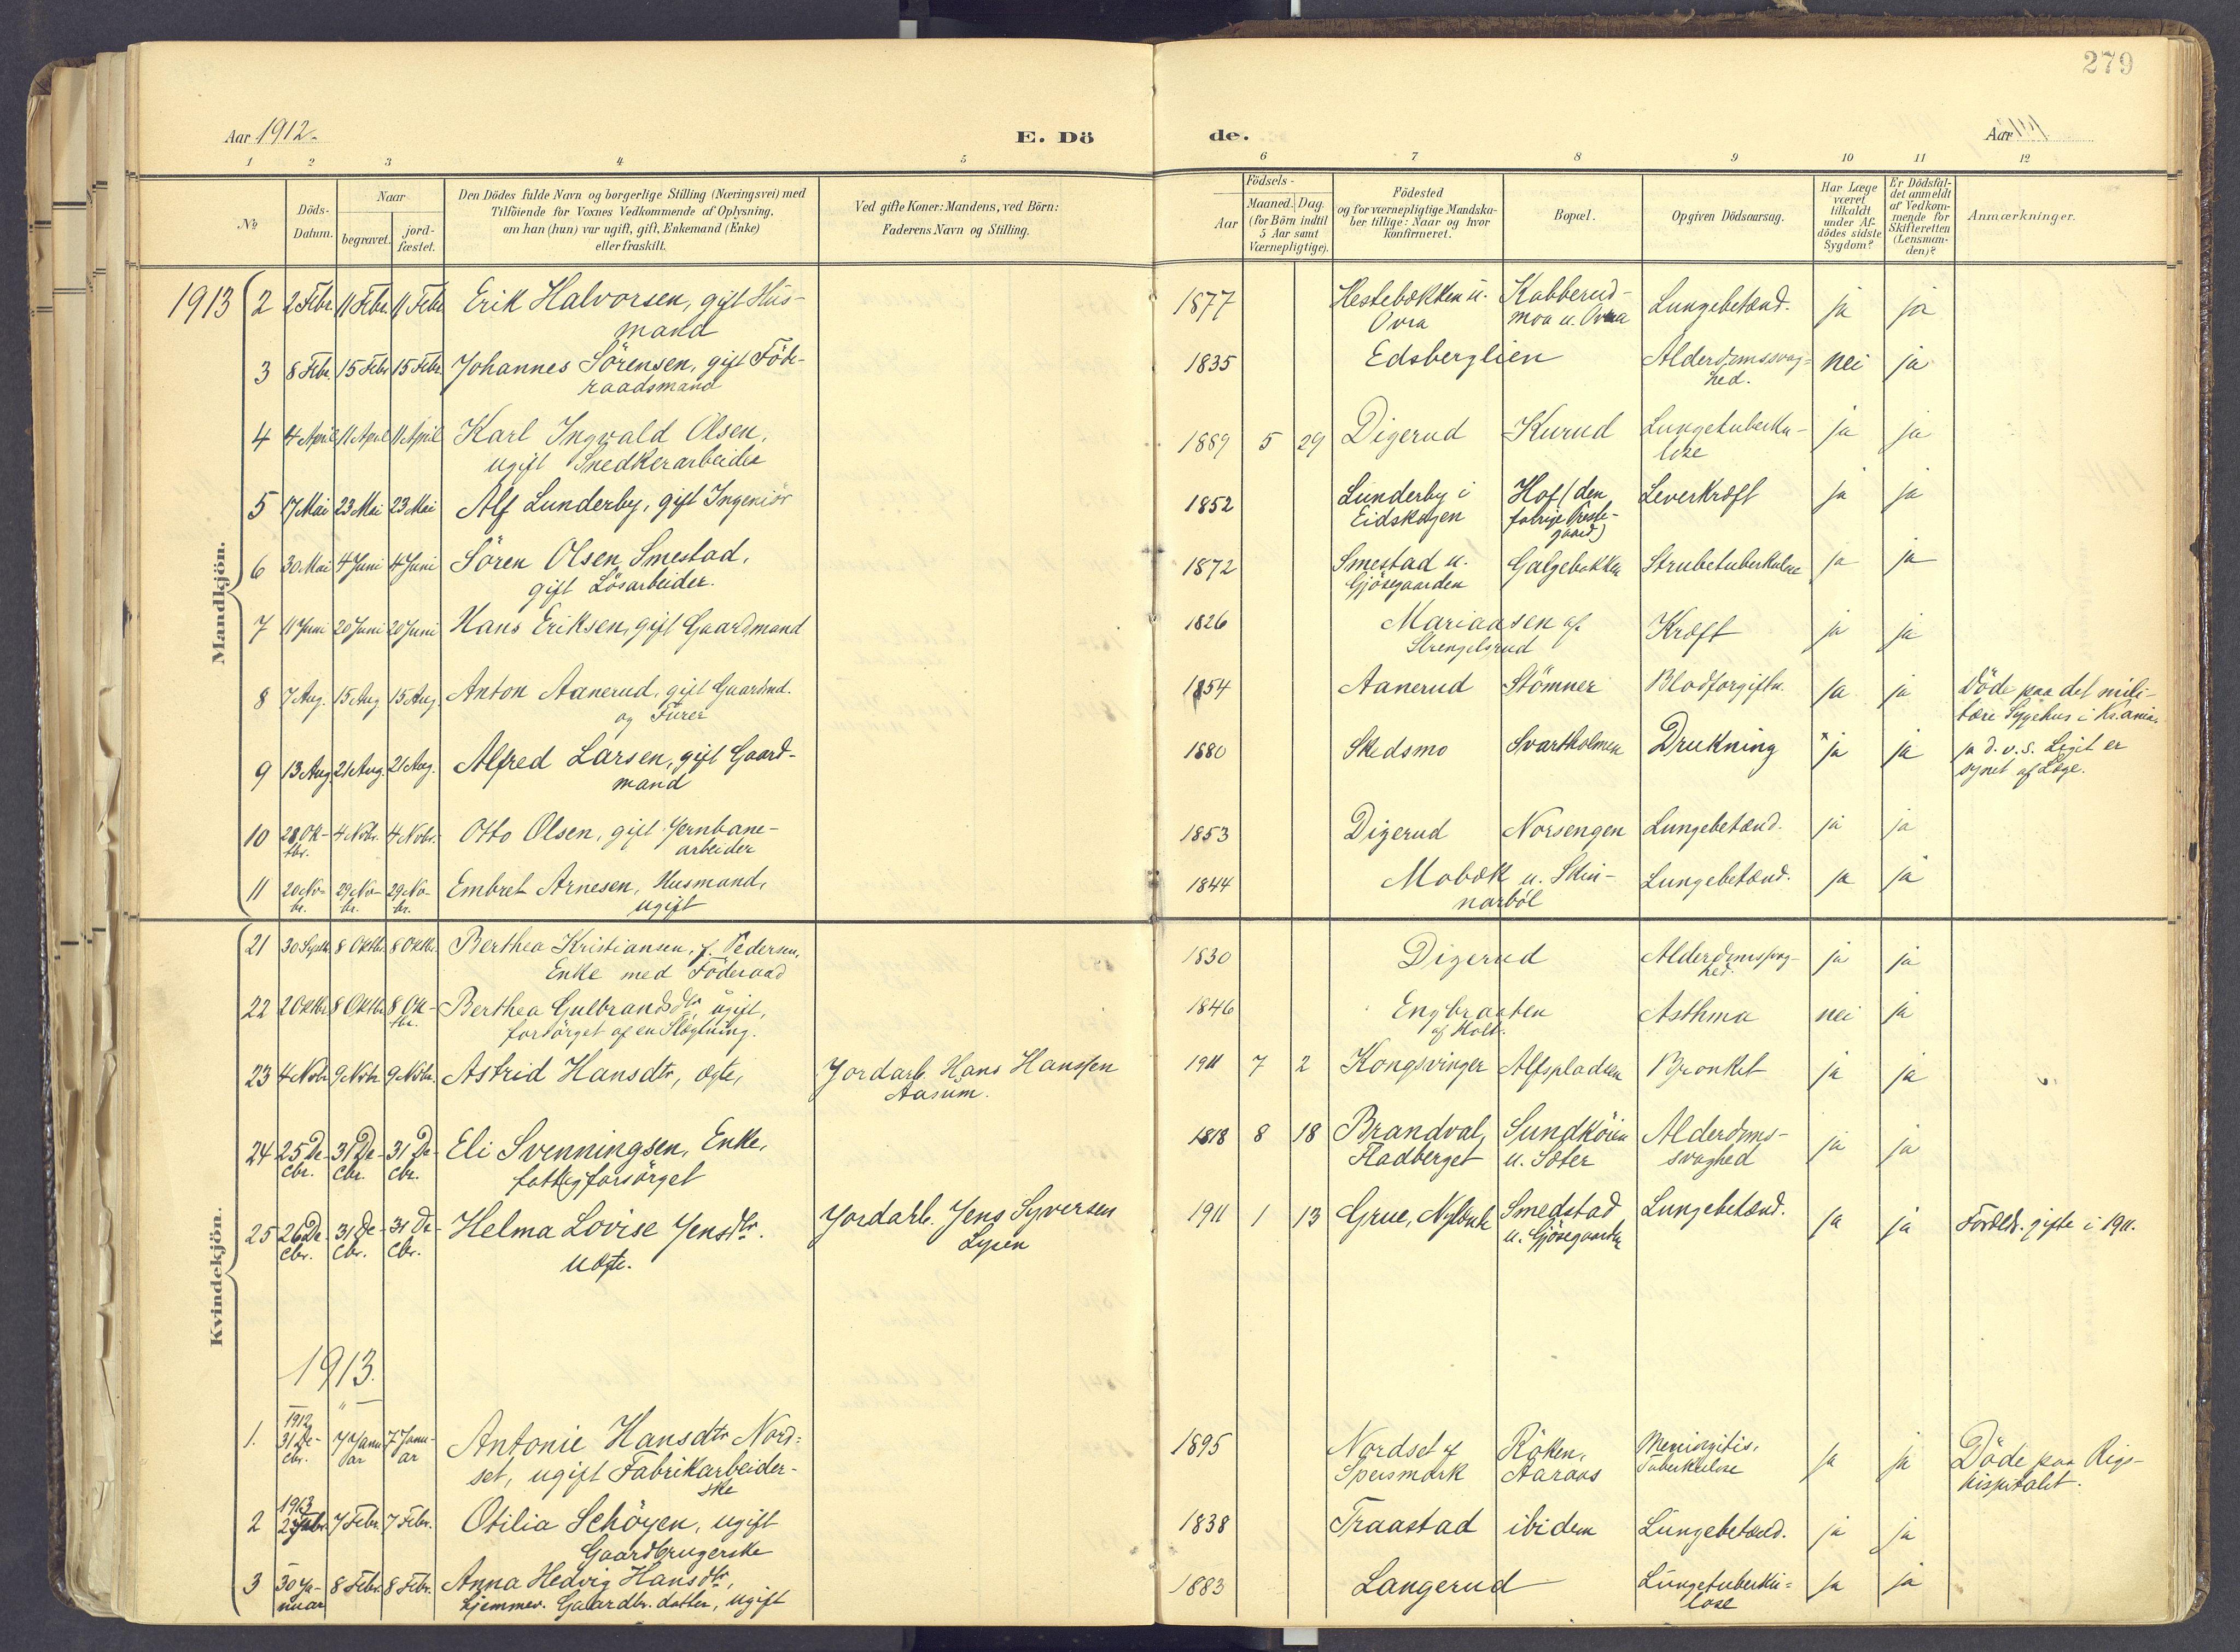 279
Aar 1912.
E. Dö
de.
Aar
1 2 3 4 5 6 7 8 9 10 11 12
No
Döds-
Datum.
Naar
begravet.
jord-
fæstet.
Den Dödes fulde Navn og borgerlige Stilling (Næringsvei) med
Tilföiende for Voxnes Vedkommende af Oplysning,
om han (hun) var ugift, gift, Enkemand (Enke)
eller fraskilt.
Ved gifte Koner: Mandens, ved Börn:
Faderens Navn og Stilling.
Födsels-
Aar
Maaned. Dag.
(for Börn indtil
5 Aar samt
Værnepligtige).
Födested
og for værnepligtige Mandska-
ber tillige: Naar og hvor
konfirmeret.
Bopæl.
Opgiven Dödsaarsag.
Har Læge
været
tilkaldt
under Af-
dödes sidste
Sygdom?
Er Dödsfal-
det anmeldt
af Vedkom-
mende for
Skifteretten
(Lensman-
den)?
Anmærkninger.
Mandkjön.
1913 2 2 Febr. 11 Febr. 11 Febr. Erik Halvorsen, gift Hus-
mand
1877 Hestebækken u.
Ovra
Kabberud-
moa u. Ovra
Lungebetænd. ja ja
3 8 Febr. 15 Febr. 15 Febr. Johannes Sörensen, gift Föde-
raadsmand
1835 Edsberglien Alderdomssvag-
hed. nei ja
4 4 April 11 April 11 April Karl Ingvald Olsen,
ugift Snedkerarbeider
1889 5 29 Digerud Kurud Lungetuberku-
lose ja ja
5 17 Mai 23 Mai 23 Mai Alf Lunderby, gift Ingeniör
1852 Lunderby i
Eidskogen
Hof (den
forrige Preste-
gaard)
Leverkræft ja ja
6 30 Mai 4 Juni 4 Juni Sören Olsen Smestad,
gift Lösarbeider.
1872 Smestad u.
Gjösegaarden
Galgebakken Strubetuberkulose ja ja
7 11 Juni 20 Juni 20 Juni Hans Eriksen, gift Gaardmand
1826 Mariaasen af
Strengelsrud
Kræft ja ja
8 7 Aug. 15 Aug 15 Aug. Anton Aanerud, gift Gaardmd.
og Furer
1854 Aanerud Stömner Blodforgiftn. ja ja Döde paa det mili-
tære Sygehus i Kr.ania.
9 13 Aug. 21 Aug. 21 Aug. Alfred Larsen, gift Gaard-
mand
1880 Skedsmo Svartholmen Drukning * ja ja ja d.v.s. Liget er
synet af Læge.
10 28 Ok-
tbr. 4 Nvbr. 4 Nvbr. Otto Olsen, gift Jernbane-
arbeider
1853 Digerud Norsengen Lungebetænd. ja ja
11 20 Nv-
br. 29 Nv-
br. 29 Nv-
br. Embret Arnesen, Husmand,
ugift
1844 Mobæk u. Skin-
narböl
Lungebetænd. ja ja
Kvindekjön.
21 30 Septb. 8 Oktbr. 8 Oktbr. Berthea Kristiansen, f. Pedersen,
Enke med Föderaad
1830 Digerud Alderdomssvag-
hed. ja ja
22 2 Oktbr 8 Oktbr 8 Ok-
tbr. Berthea Gulbrandsdtr, ugift,
forsörget af en Slægtning.
1846 Engbraaten
af Holt.
Asthma nei ja
23 4 Nvbr 9 Nvbr 9 Nvbr. Astrid Hansdtr, ægte, Jordarb. Hans Hanssen
Aasum.
1911 7 2 Kongsvinger Alfspladsen Bronkit ja ja
24 25 De-
cbr. 31 De-
cbr. 31 De-
cbr. Eli Svenningsen, Enke,
fattigforsörget
1818 8 18 Brandval,
Fladberget
Sundköien
u. Sæter
Alderdoms-
svaghed ja ja
25 26 De-
cbr. 31 De-
cbr. 31 De-
cbr. Helma Lovise Jensdtr.
uægte.
Jordarb. Jens Syversen
Lysen
1911 1 13 Grue, Smedstad
u. Gjösegaarden
Lungebetænd. ja ja Forældr. gifte i 1911.
1913.
1. 1912
31 De-
cbr. 7 Janu
ar 7 Janu-
ar Antonie Hansdtr Nord-
set, ugift Fabrikarbeider-
ske
1895 Nordset af
Speismark
Röken,
Aaraas
Meningitis,
Tuberkulose ja ja Döde paa Rigs-
hispitalet.
2 1913
7 Febr. 7 Febr. Otilia Schöyen, ugift
Gaardbrugerske
1838 Traastad ibidem Lungebetænd. ja ja
3 30 Ja-
nuar 8 Febr. 8 Febr. Anna Hedvig Hansdtr,
hjemmev. Gaardbr. datter, ugift
1883 Langerud Lungetuberku-
lose ja ja